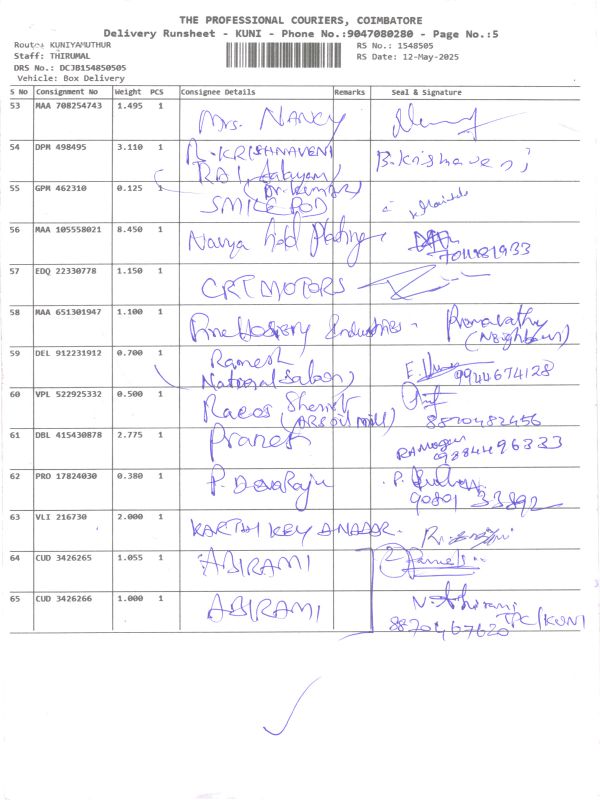 THE PROFESSIONAL COURIERS, COIMBATORE
Delivery Runsheet - KUNI - Phone No.:9047080280 - Page No.:5
Route: KUNIYAMUTHUR RS No.: 1548505
Staff: THIRUMAL RS Date: 12-May-2025
DRS No.: DCJB154850505
Vehicle: Box Delivery
S No Consignment No Weight PCS Consignee Details Remarks Seal & Signature
53 MAA 708254743 1.495 1 Mrs. NANCY
54 DPM 498495 3.110 1 R-KRISHNAVENI B.Krishnaveni
55 GPM 462310 0.125 1 (Dr. Kumar)
SMILE POD
56 MAA 105558021 8.450 1 Navya Gold Plating
57 EDQ 22330778 1.150 1 CRT MOTORS
58 MAA 651301947 1.100 1 Fine Hosiery Industries - Premavathy
(Neighbour)
59 DEL 912231912 0.700 1 Ramesh
National Saloon) 9944674128
60 VPL 522925332 0.500 1
(ARS oil mill) 8870482456
61 DBL 415430878 2.775 1 Pranesh
9884496333
62 PRO 17824030 0.380 1 P. DevaRaju P.
90801 33892
63 VLI 216730 2.000 1 KARTHIKEYANADAR.
64 CUD 3426265 1.055 1 ABIRAMI
65 CUD 3426266 1.000 1 ABIRAMI N. Abirami
8870467620 TPC/KUNI